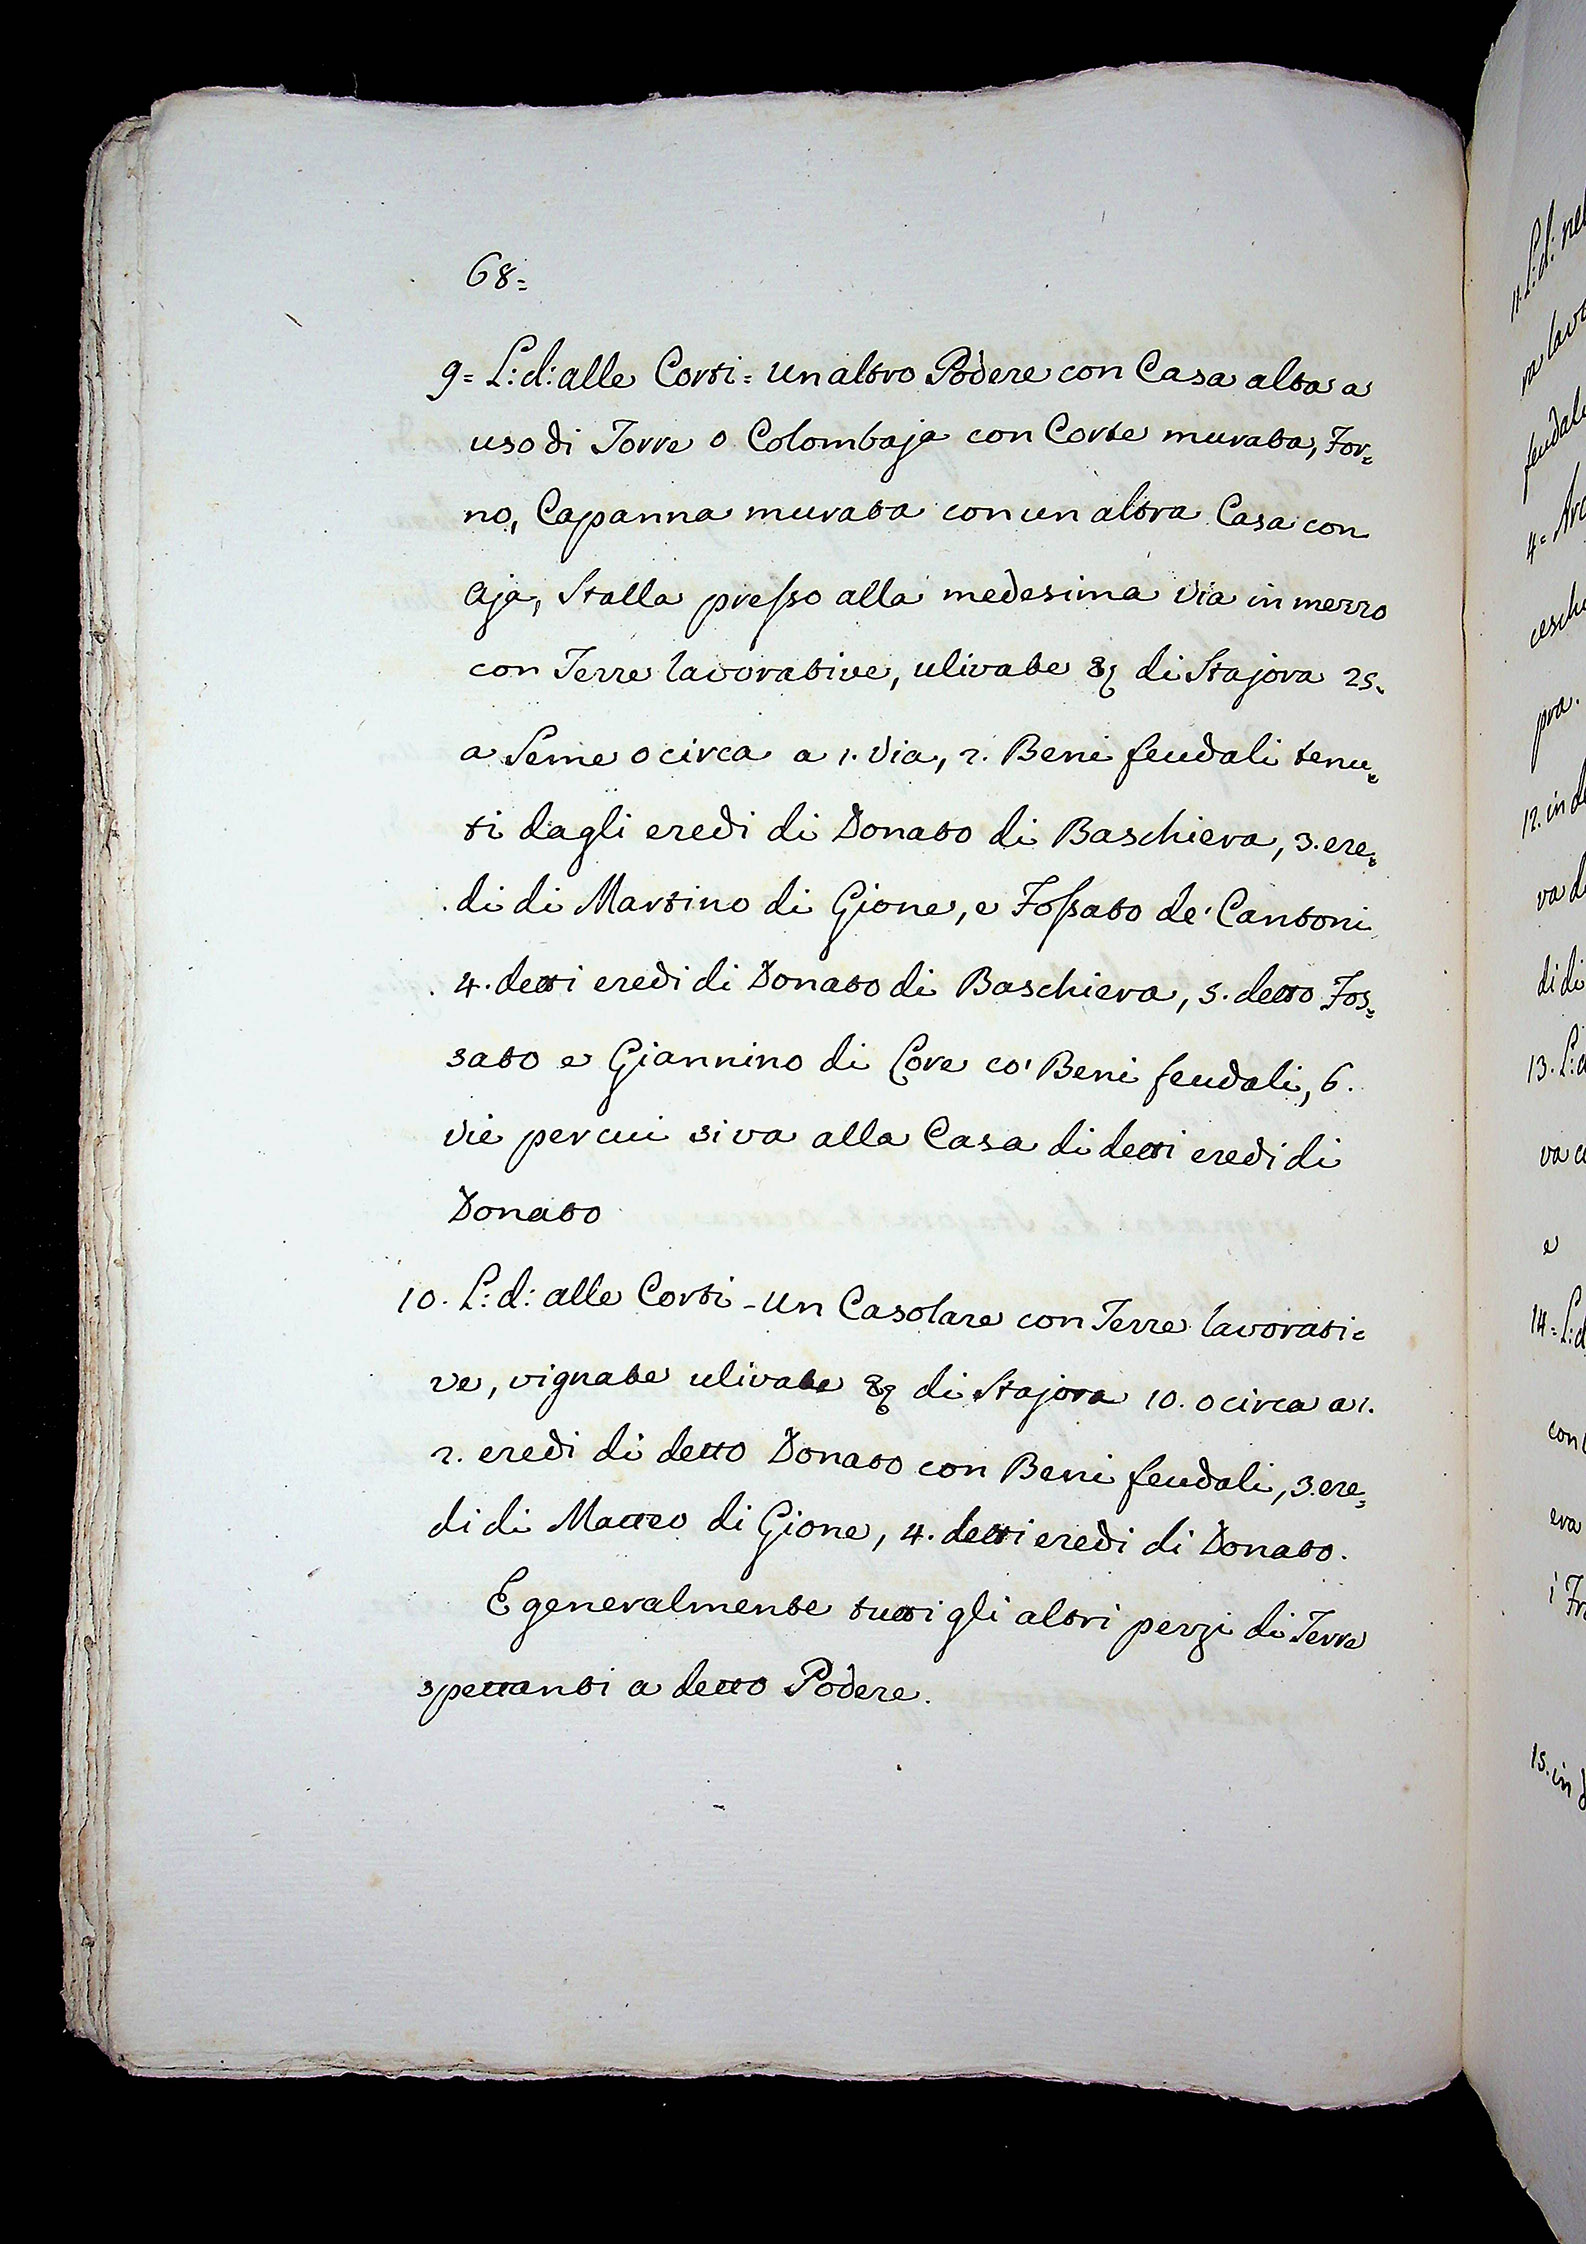 68=
9= L: d: alle Corti= un altro Podere con Casa alta a
uso di Torre o Colombaja con Corte murata, For=
no, Capanna murata con un altra Casa con
Aja, Stalla presso alla medesima via in mezzo
con Terre lavorative, ulivate &c di Stajora 25.
a Seme o circa a 1. Via, 2. Beni feudali tenu=
ti dagli eredi di Donato di Baschiera, 3. ere=
di di Martino di Gione, e Fossato de' Cantoni
4. detti eredi di Donato di Baschiera, 5. detto Fos=
sato e Giannino di Core co' Beni feudali, 6.
vie per cui si va alla Casa di detti eredi di
Donato
10. L: d: alle Corti - un Casolare con Terre lavorati=
ve, vignate ulivate &c di Stajora 10. o circa a 1.
2. eredi di detto Donato con Beni feudali, 3. ere=
di di Matteo di Gione, 4. detti eredi di Donato.
E generalmente tutti gli altri pezzi di Terra
spettanti a detto Podere.
11. L: d: nel
feudal
4=
pra.
12. in
va
di di
13.
va
e
14=
con
era
15. in